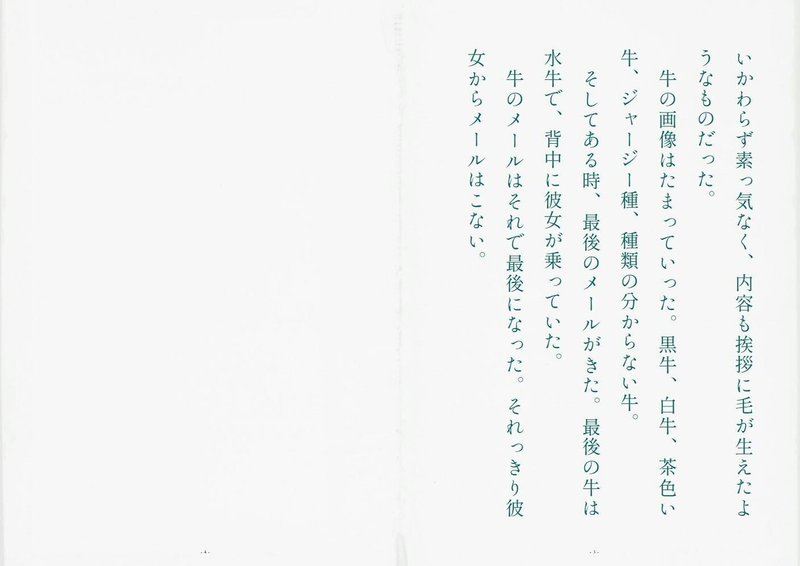 いかわらず素っ気なく、内容も挨拶に毛が生えたよ
うなものだった。
牛の画像はたまっていった。黒牛、白牛、茶色い
牛、ジャージー種、種類の分からない牛。
そしてある時、最後のメールがきた。最後の牛は
水牛で、背中に彼女が乗っていた。
牛のメールはそれで最後になった。それっきり彼
女からメールはこない。